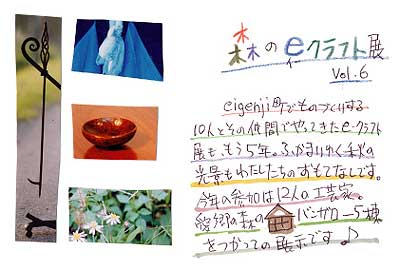 森のeクラフト展
イー
Vol.6
eigenji町でものづくりする
10人とその仲間でやってきたe-クラフト
展も、もう5年。ふかまりゆく秋の
光景もわたしたちのおもてなしです。
今年の参加は12人の工芸家。
愛郷の森の バンガロー5棟
をつかっての展示です♪